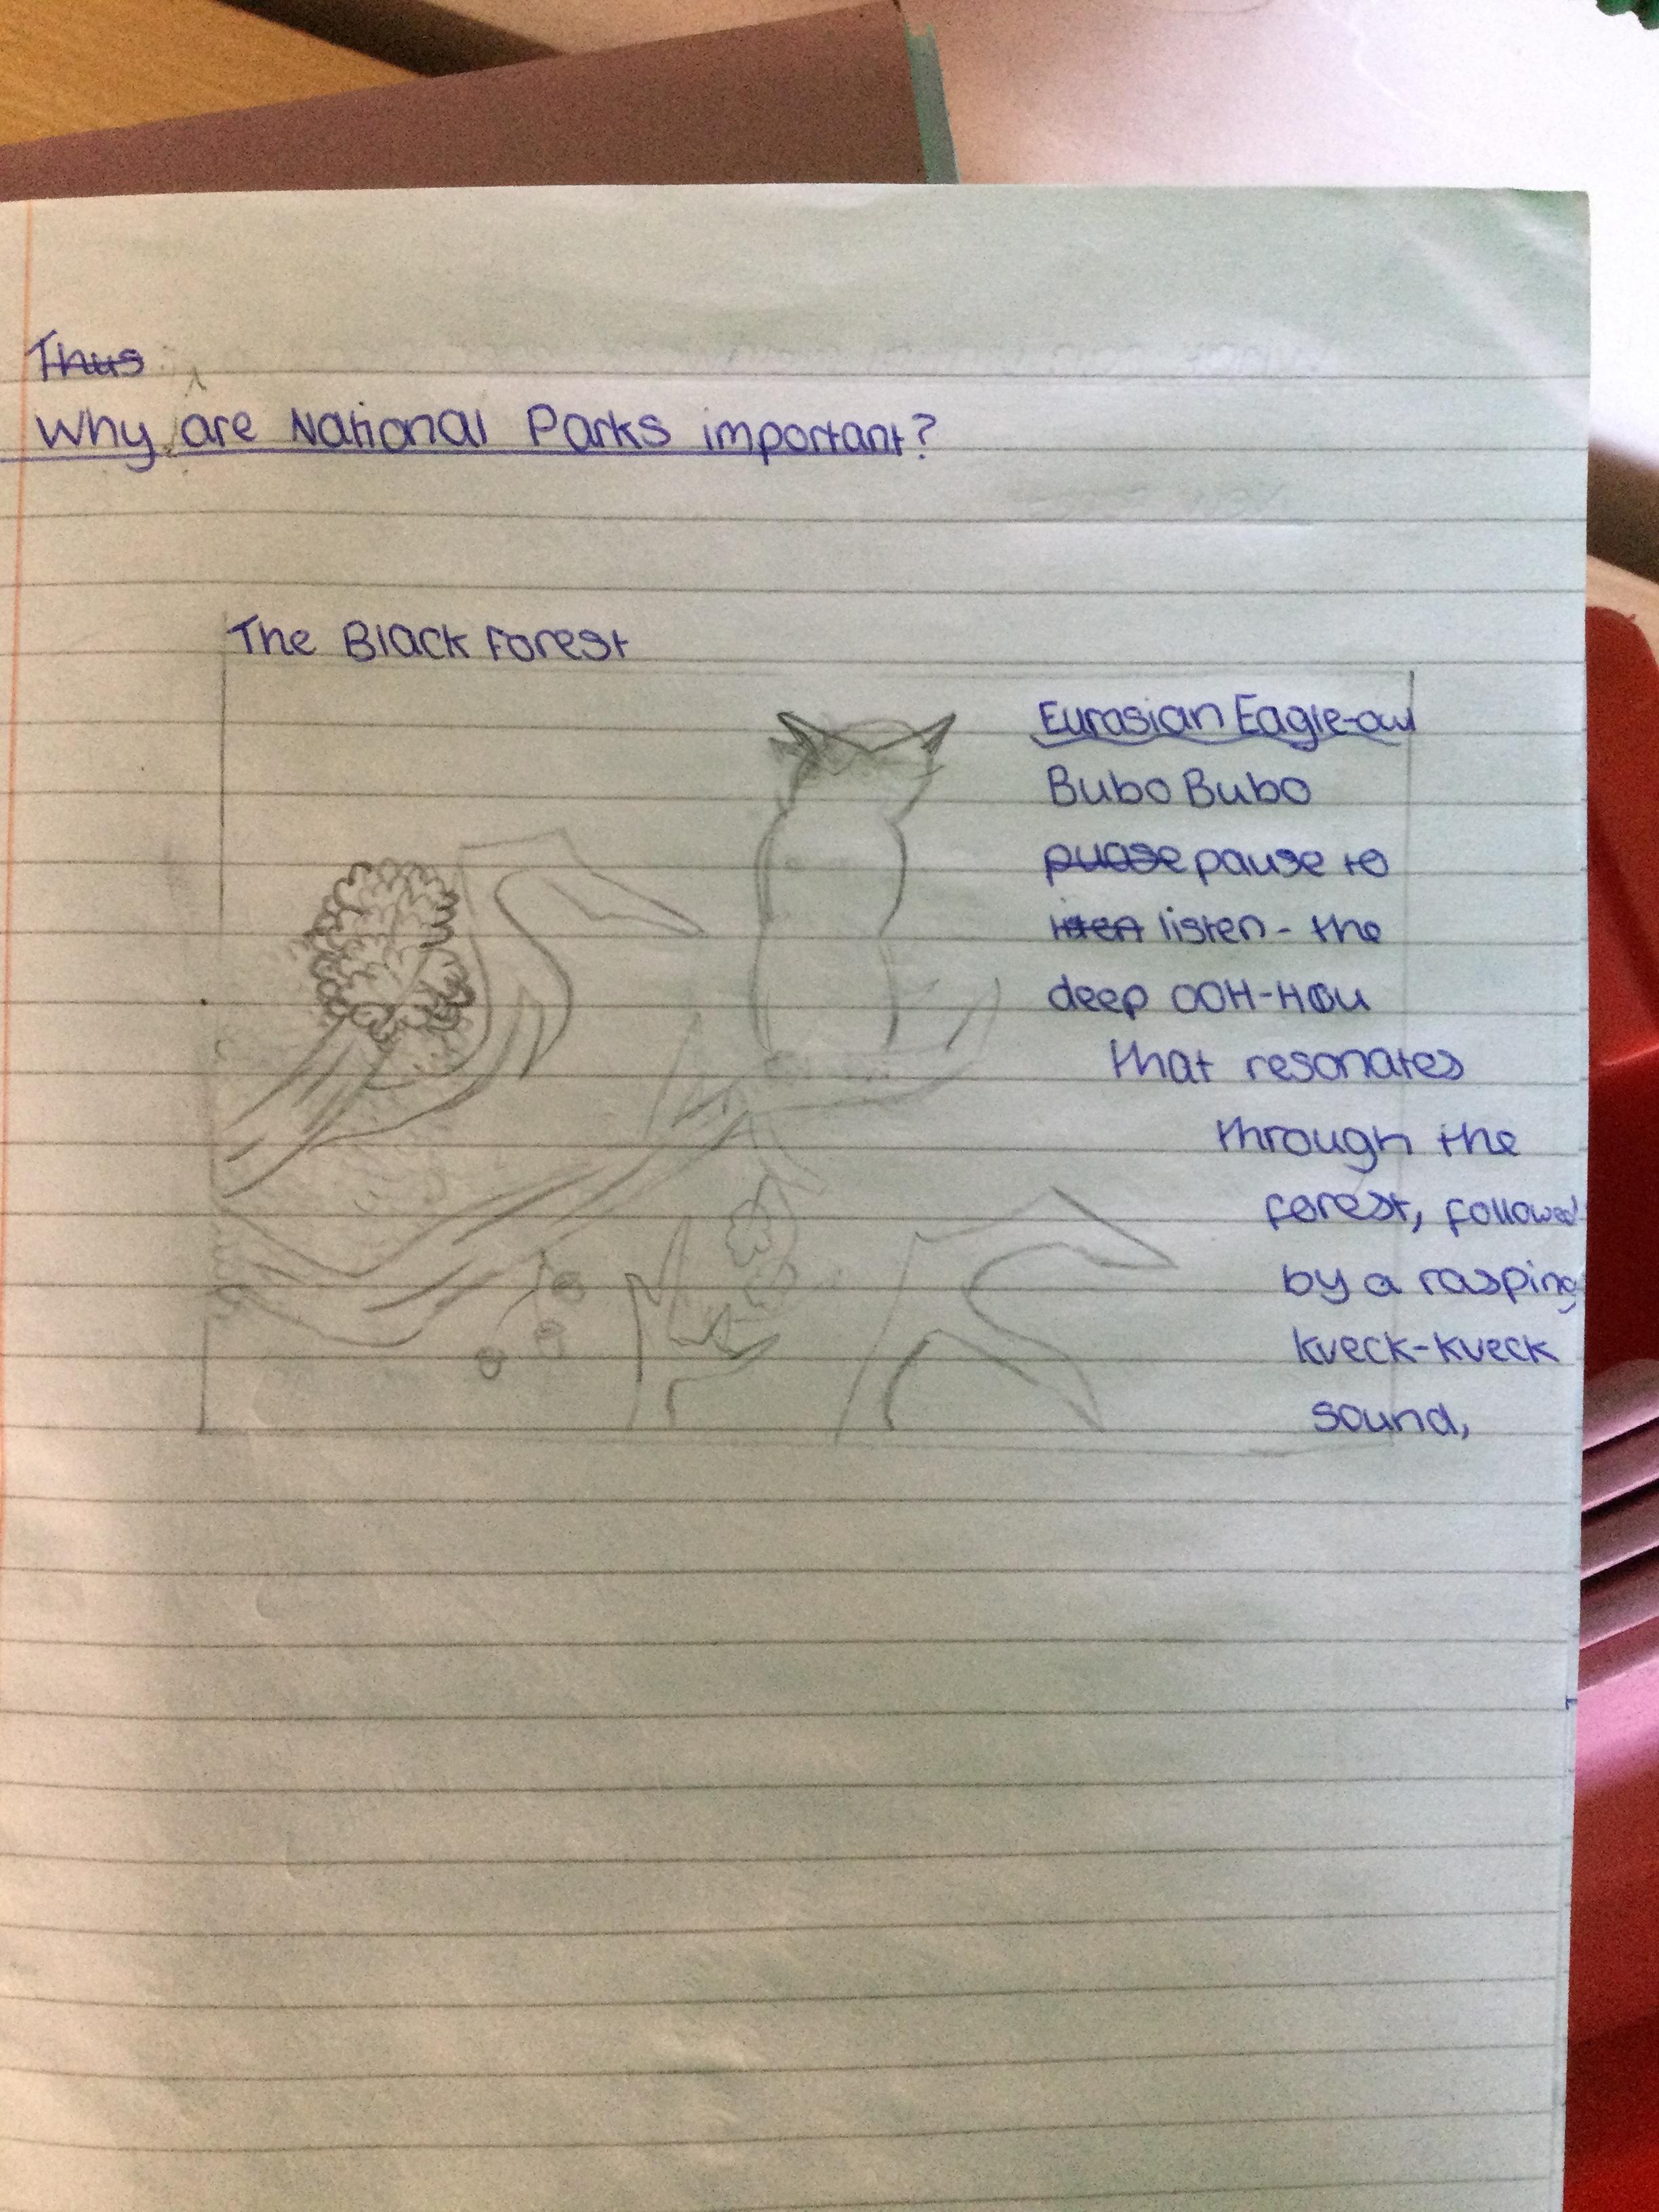 Thus
Why are National Parks important?
The Black Forest
Eurasian Eagle-owl
Bubo Bubo
puase pause to
listen - the
deep OOH-HOU
that resonates
through the
forest, followed
by a rasping
kveck-kveck
sound,